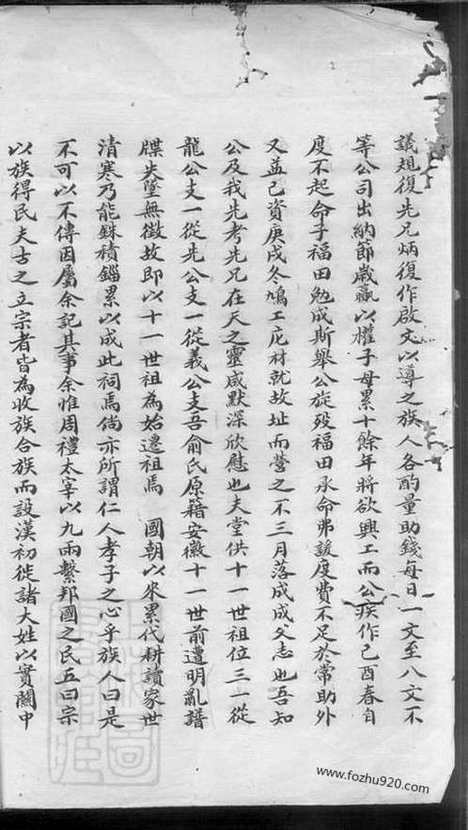 議規復先兄炳復作啟文以導之族人各酌量助錢每日一文至八文不
等公司出納節歲贏以權子母累十餘年將欲興工而公疾作己酉春自
度不起命子福田勉成斯舉公旋歿福田承命弗諼度費不足於常助外
又益己資庚戌冬鳩工庀材就故址而營之不三月落成成父志也吾知
公及我先考先兄在天之靈咸默深欣慰也夫堂供十一世祖位三一從
龍公支一從先公支一從義公支吾俞氏原籍安徽十一世前遭明亂譜
牒失墜無徵故即以十一世祖為始遷祖焉 國朝以來累代耕讀家世
清寒乃能銖積錙累以成此祠焉倘亦所謂仁人孝子之心乎族人曰是
不可以不傳因屬余記其事余惟周禮太宰以九兩繫邦國之民五曰宗
以族得民夫古之立宗者皆為收族合族而設漢初徙諸大姓以實關中
www.fozhu920.com